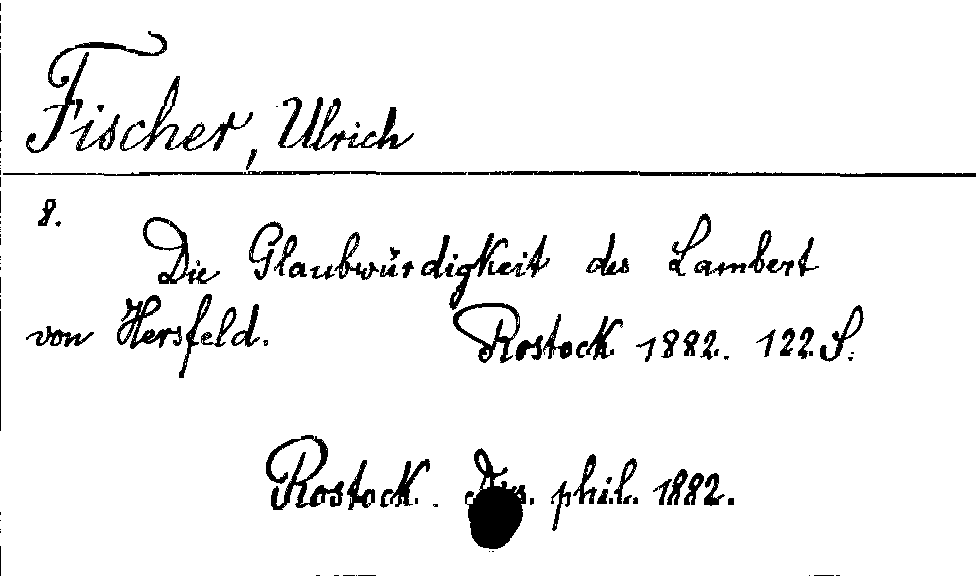 Fischer, Ulrich
8.
Die Glaubwürdigkeit des Lambert
von Hersfeld. Rostock 1882. 122 S.
Rostock. Diss. phil. 1882.